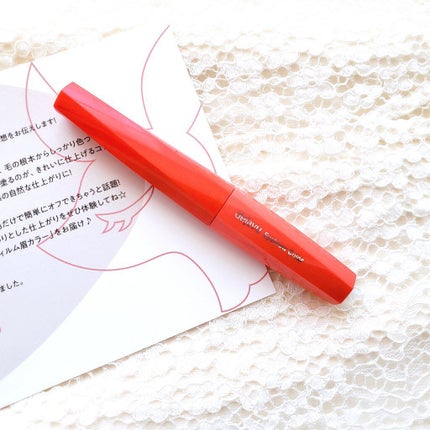 想をお伝えします!
、毛の根本からしっかり色づ
塗るのが、きれいに仕上げるコ
の自然な仕上がりに!
るだけで簡単にオフできちゃうと話題!
りとした仕上がりをぜひ体験してね☆
ィルム眉カラー」をお届け♪
ました。